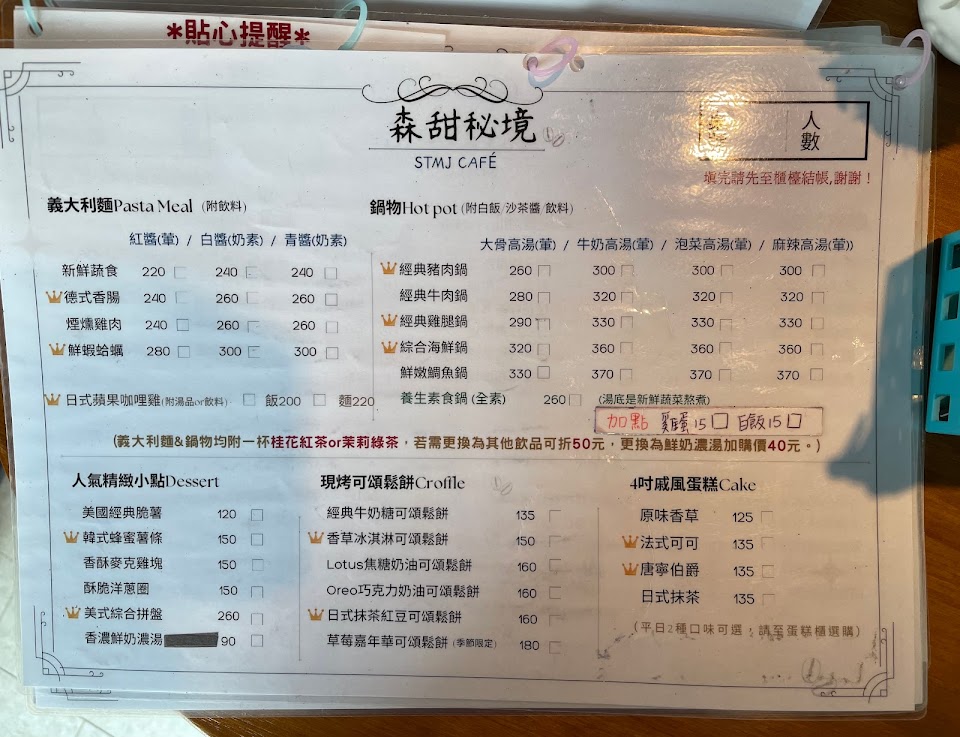 *貼心提醒*
森甜秘境
STMJ CAFÉ
人數
填完請先至櫃檯結帳,謝謝!
義大利麵Pasta Meal (附飲料)
紅醬(葷) / 白醬(奶素) / 青醬(奶素)
新鮮蔬食 220 240 240
德式香腸 240 260 260
煙燻雞肉 240 260 260
鮮蝦蛤蠣 280 300 300
日式蘋果咖哩雞(附湯品or飲料) 飯200 麵220
鍋物Hot pot (附白飯/沙茶醬/飲料)
大骨高湯(葷) / 牛奶高湯(葷) / 泡菜高湯(葷) / 麻辣高湯(葷))
經典豬肉鍋 260 300 300 300
經典牛肉鍋 280 320 320 320
經典雞腿鍋 290 330 330 330
綜合海鮮鍋 320 360 360 360
鮮嫩鯛魚鍋 330 370 370 370
養生素食鍋 (全素) 260 (湯底是新鮮蔬菜熬煮)
加點 雞蛋15 白飯15
(義大利麵&鍋物均附一杯桂花紅茶or茉莉綠茶，若需更換為其他飲品可折50元，更換為鮮奶濃湯加購價40元。)
人氣精緻小點Dessert
美國經典脆薯 120
韓式蜂蜜薯條 150
香酥麥克雞塊 150
酥脆洋蔥圈 150
美式綜合拼盤 260
香濃鮮奶濃湯 90
現烤可頌鬆餅Croffle
經典牛奶糖可頌鬆餅 135
香草冰淇淋可頌鬆餅 150
Lotus焦糖奶油可頌鬆餅 160
Oreo巧克力奶油可頌鬆餅 160
日式抹茶紅豆可頌鬆餅 160
草莓嘉年華可頌鬆餅 (季節限定) 180
4吋戚風蛋糕Cake
原味香草 125
法式可可 135
唐寧伯爵 135
日式抹茶 135
(平日2種口味可選，請至蛋糕櫃選購)